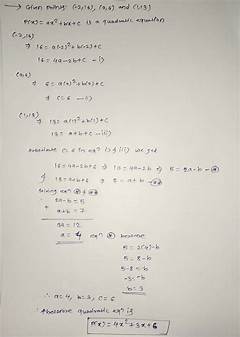 → Given Points: (-2,16), (0,6) and (1,13)
P(x) = ax²+bx+c is a quadratic equation
(-2,16)
⇒ 16 = a(-2)²+b(-2)+c
16 = 4a-2b+c -i)
(0,6)
⇒ 6 = a(0)²+b(0)+c
⇒ c = 6 -ii)
(1,13)
⇒ 13 = a(1)²+b(1)+c
13 = a+b+c -iii)
Substitute c=6 in eqⁿ i) & iii) we get
16 = 4a-2b+6 ⇒ 10 = 4a-2b ⇒ 5 = 2a-b
& 13 = a+b+6 ⇒ 7 = a+b
Solving eqⁿ &
2a-b = 5
+ a+b = 7
3a = 12
a = 4 eqⁿ becomes
5 = 2(4)-b
5 = 8-b
5-8 = -b
-3 = -b
b = 3
∴ a=4, b=3, c=6
∴ therefore quadratic eqⁿ is
P(x) = 4x²+3x+6